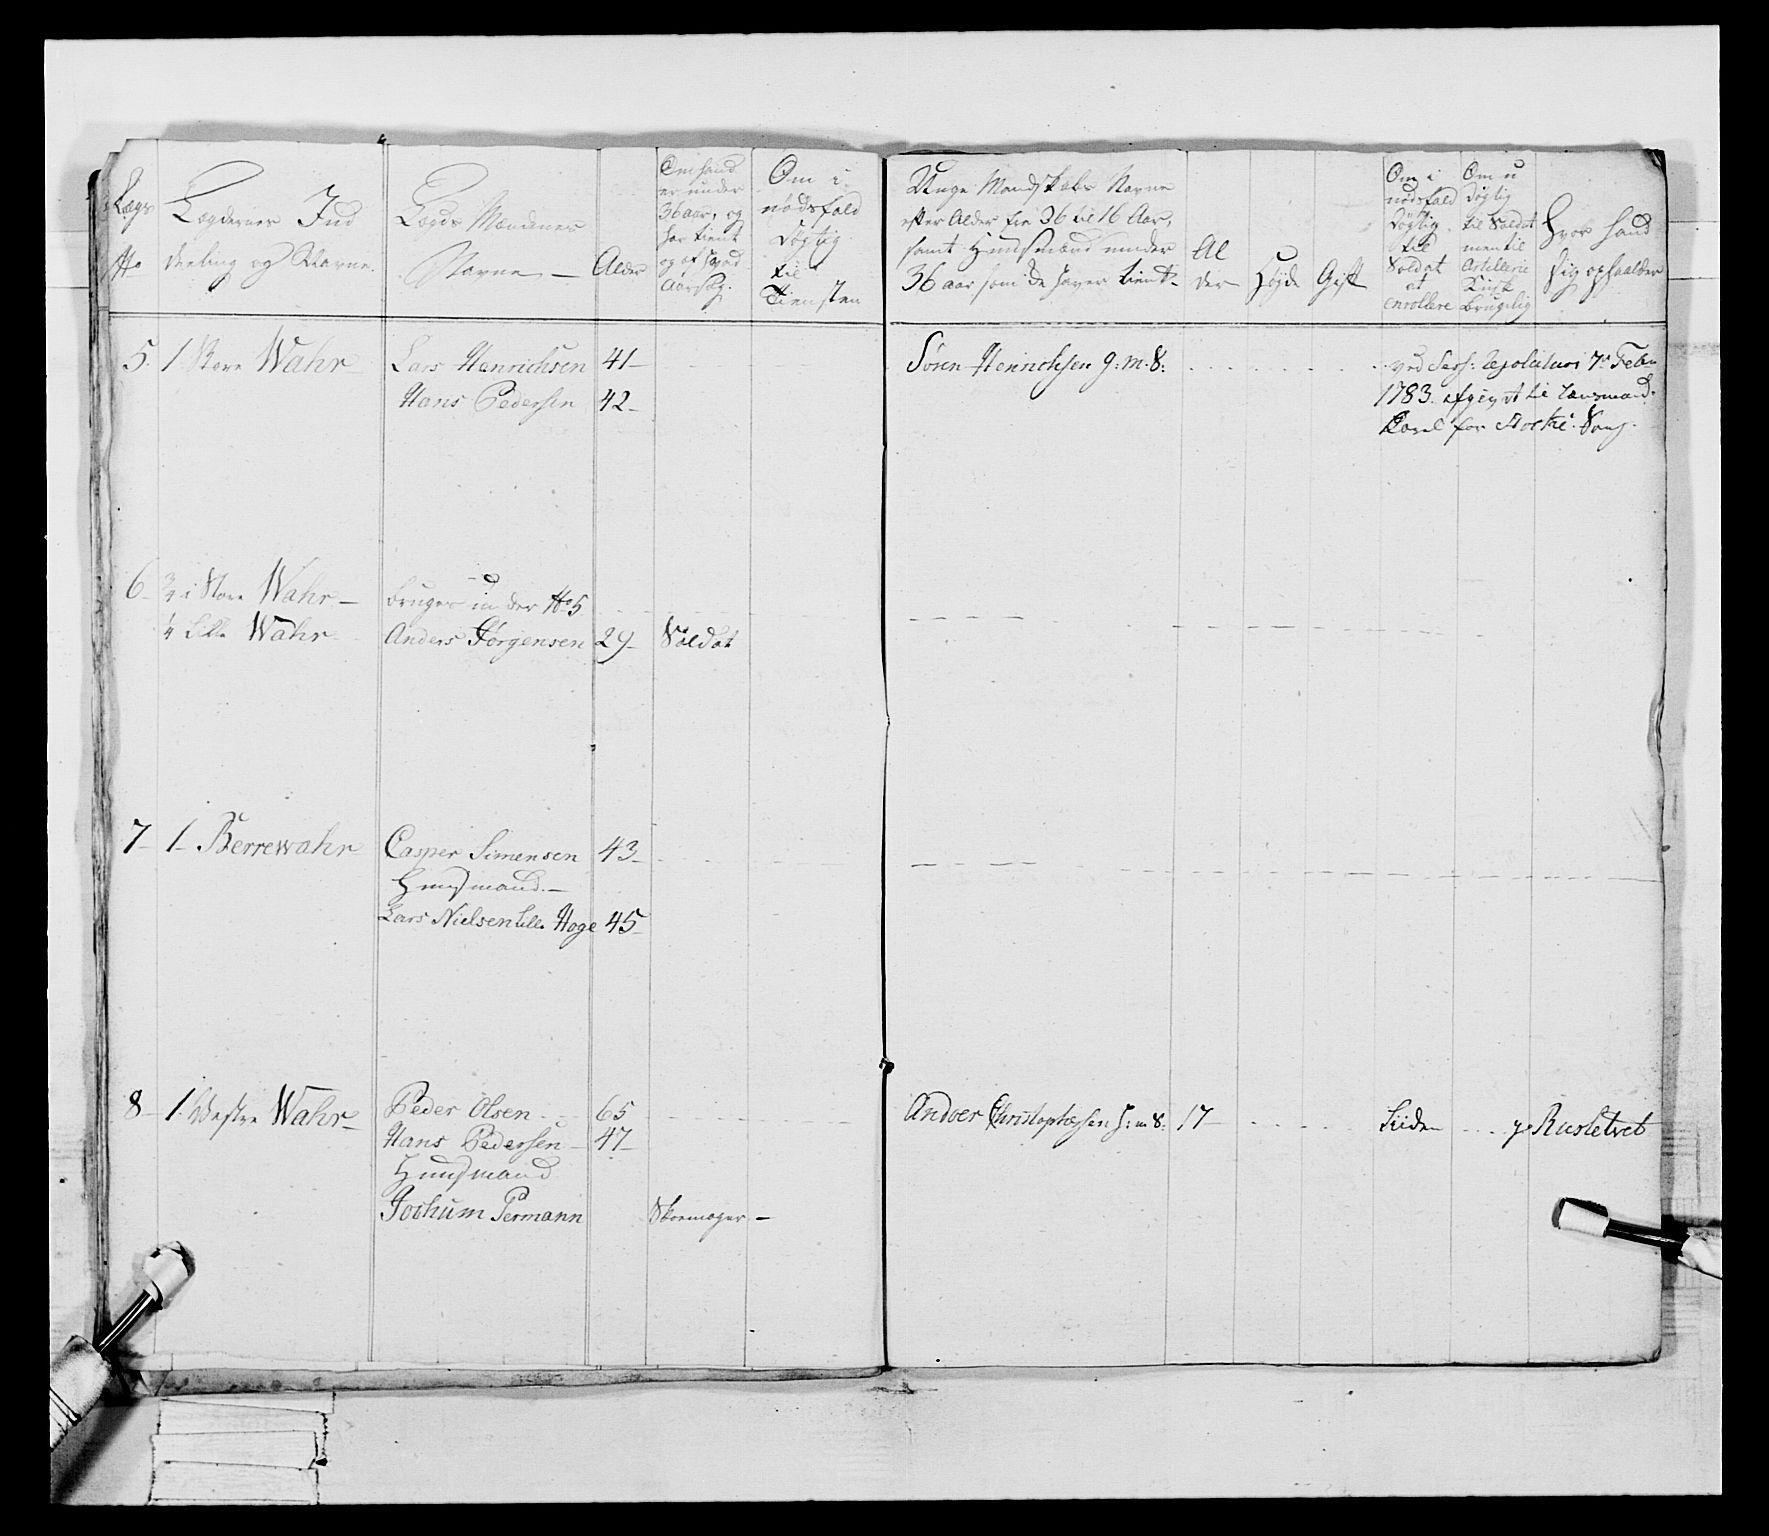 Lægs
No
Lægdernes Ind
deeling og Navne.
Lægds Mændenes
Navne —
Alder
Om hand
er under
36 aar, og
har tient
og af hvad
Aarsag.
Om i
nødsfald
Døgtig
til
Tiensten
Unge Mandskabs Navne
efter Alder fra 36 til 16 Aar,
samt Huusmænd under
36 aar som de haver tient
Al
der
Høyde
Gift
Om i
nødsfald
Døgtig
til
Soldat
at
enrollere
Om u
døgtig
til Soldat
men til
Artillerie
Kusk
brugelig
Hvor hand
sig opholder
5. 1 Store Wahr Lars Henrichsen 41
Hans Pedersen 42
Sören Henrichsen g: m. S: ved Sess: Resolution 7de Febr
1783. afgivet til Lænsmand
Karl for Aschi Song.
6 3/4 i Store Wahr bruges under No 5
1/4 Lille Wahr Anders Jörgensen 29 Soldat
7 1 Berrewahr Casper Simensen 43
Huusmand
Lars Nielsen Lille Hage 45
8 1 Vestre Wahr Peder Olsen 65
Hans Pedersen 47
Huusmand
Jochum Permann Skoemager
Andver Christophersen h: m S: 17 Liiden p Rusletvet